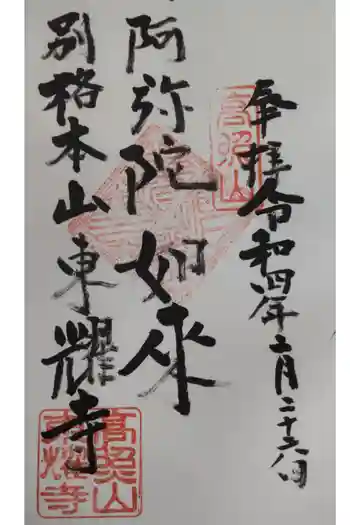 奉拝 令和四年二月二十六日
高照山
阿弥陀如来
別格本山東耀寺
高照山
東耀寺